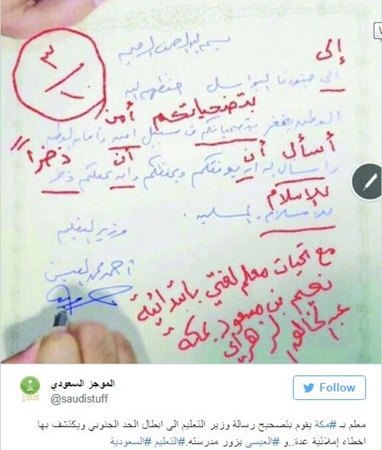 بسم الله الرحمن الرحيم
٣
١٠
إلى
الى جنودنا البواسل حفظهم الله
بتضحياتكم أمن
الوطن يفخر بتضحياتكم في سبيل امنه وأمان
أسأل أن أن ذخراً
واسال الله ان يوفقكم ويحفظكم وان يجعلكم ذخر
للإسلام
للاسلام والمسلمين
وزير التعليم
أحمد محمد العيسى
مع تحيات معلم لغتي بابتدائية
نعيم بن مسعود بمكة
عبدالخالق الزهراني
الموجز السعودي
@saudistuff
Follow
معلم بـ #مكة يقوم بتصحيح رسالة وزير التعليم الى ابطال الحد الجنوبي ويكتشف بها
اخطاء إملائية عدة..و #العيسى يزور مدرسته.#التعليم #السعودية